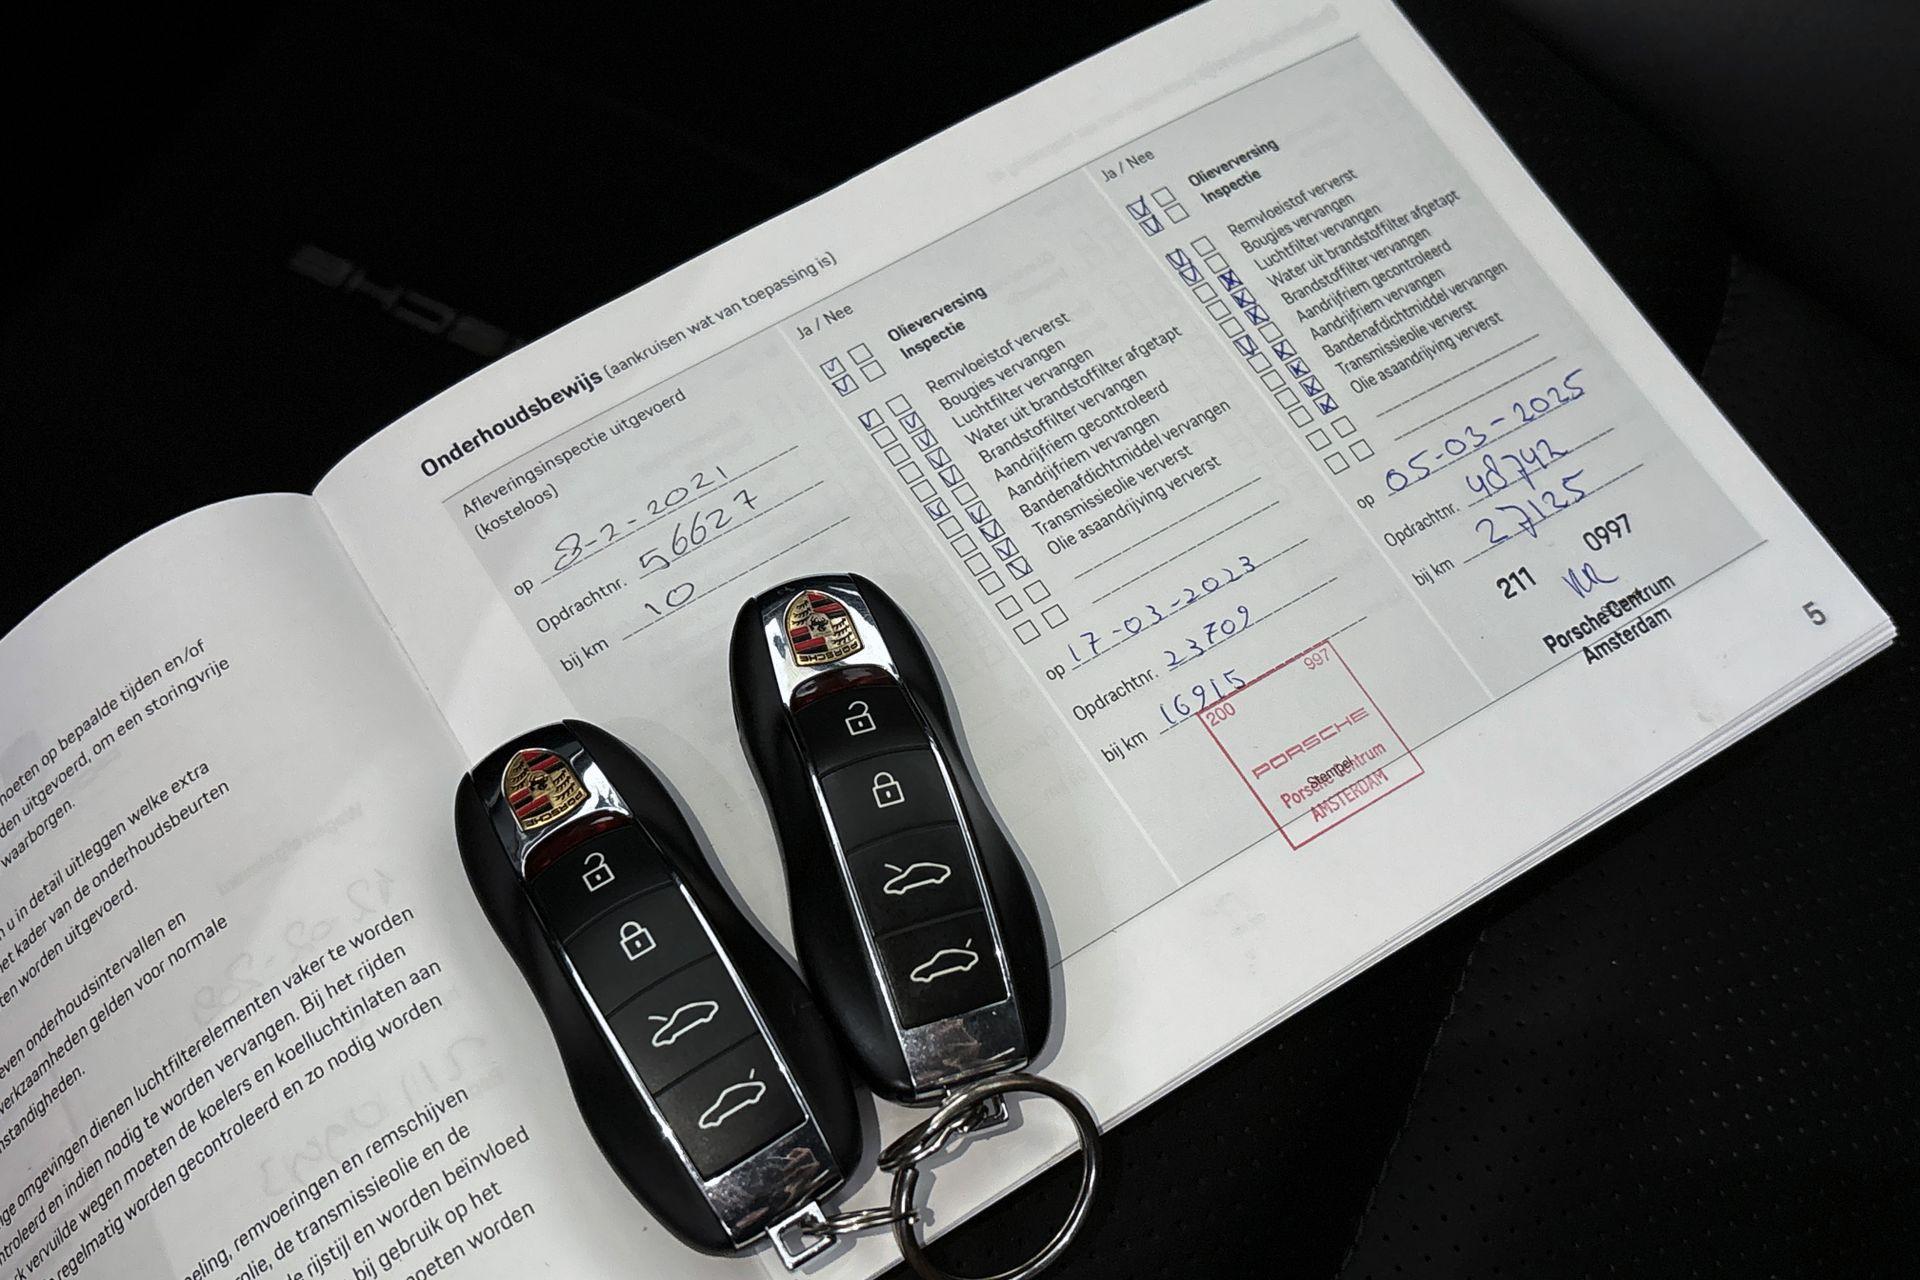 noeten op bepaalde tijden en/of
den uitgevoerd, om een storingvrije
waarborgen.
n u in detail uitleggen welke extra
het kader van de onderhoudsbeurten
ten worden uitgevoerd.
even onderhoudsintervallen en
verkzaamheden gelden voor normale
nstandigheden.
ge omgevingen dienen luchtfilterelementen vaker te worden
ntroleerd en indien nodig te worden vervangen. Bij het rijden
rk vervuilde wegen moeten de koelers en koelluchtinlaten aan
regelmatig worden gecontroleerd en zo nodig worden
eling, remvoeringen en remschijven
rolie, de transmissieolie en de
de rijstijl en worden beïnvloed
bij gebruik op het
moeten worden
Onderhoudsbewijs (aankruisen wat van toepassing is)
Afleveringsinspectie uitgevoerd
(kosteloos)
op 8-2-2021
Opdrachtnr. 56627
bij km 10
Ja / Nee
Olieverversing
Inspectie
Remvloeistof ververst
Bougies vervangen
Luchtfilter vervangen
Water uit brandstoffilter afgetapt
Brandstoffilter vervangen
Aandrijfriem gecontroleerd
Aandrijfriem vervangen
Bandenafdichtmiddel vervangen
Transmissieolie ververst
Olie asaandrijving ververst
op 17-03-2023
Opdrachtnr. 23709
bij km 16915
200 997
PORSCHE
Stempel
Porsche Centrum
AMSTERDAM
Ja / Nee
Olieverversing
Inspectie
Remvloeistof ververst
Bougies vervangen
Luchtfilter vervangen
Water uit brandstoffilter afgetapt
Brandstoffilter vervangen
Aandrijfriem gecontroleerd
Aandrijfriem vervangen
Bandenafdichtmiddel vervangen
Transmissieolie ververst
Olie asaandrijving ververst
op 05-03-2025
Opdrachtnr. 48742
bij km 27125
211 0997
Porsche Centrum
Amsterdam
5
PORSCHE
PORSCHE